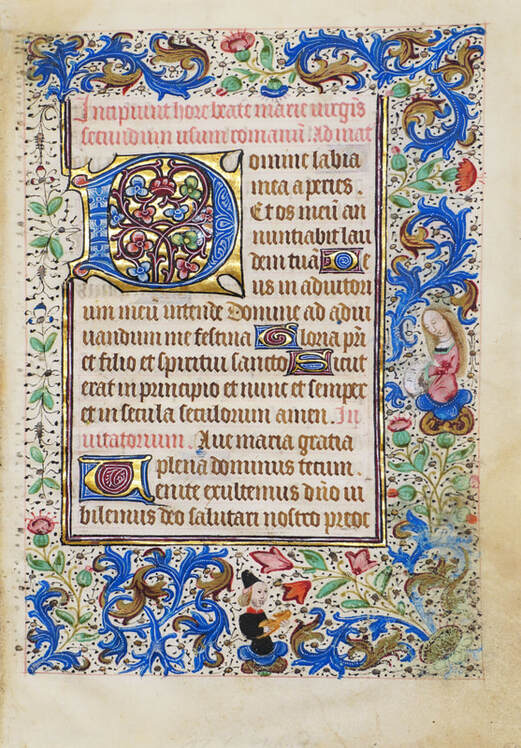 Incipiunt hore beate marie virgis
secundum usum romanū Ad mat
Domine labia
mea aperies.
Et os meū an
nuntiabit lau
dem tuā De
us in adiutori
um meū intende Domine ad adiu
uandum me festina Gloria pr̄i
et filio et spiritui sancto Sicut
erat in principio et nunc et semper
et in secula seculorum amen. In
uitatorium. Aue maria gratia
plena dominus tecum.
Venite exultemus dn̄o iu
bilemus deo salutari nostro preoc